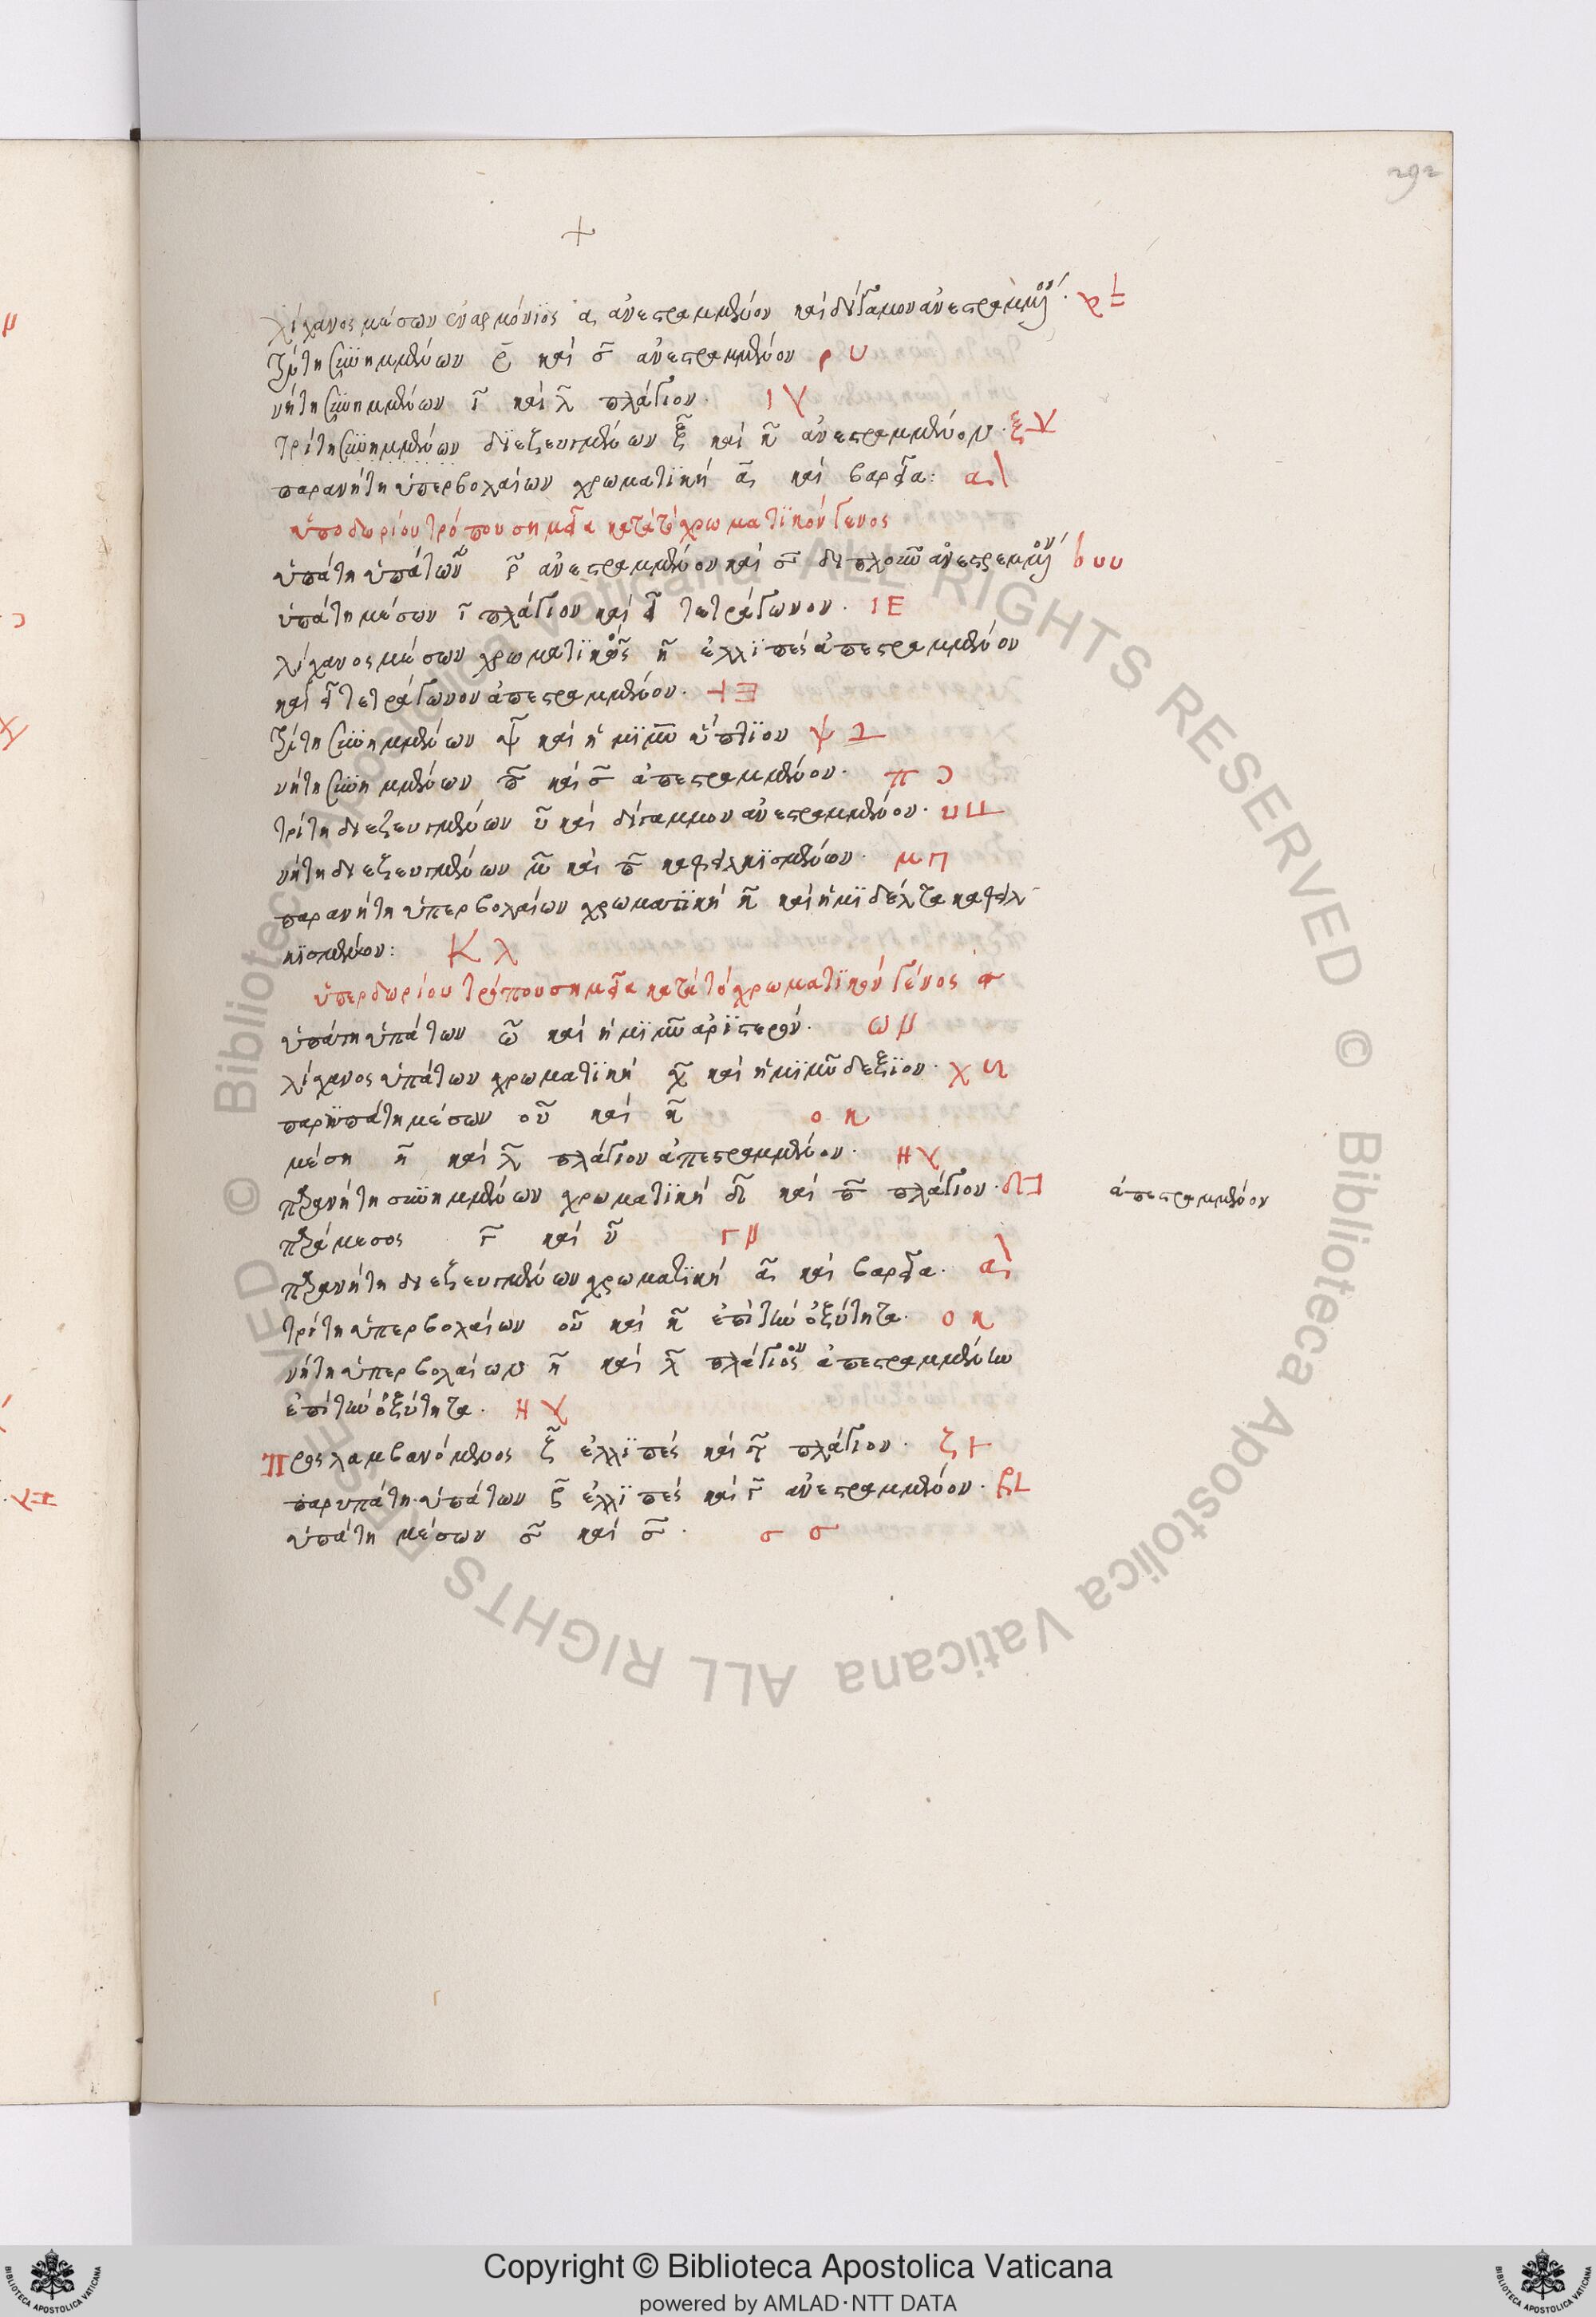 292
λίχανος μέσων ἐναρμόνιος α ἀνεστραμμένον καὶ δίγαμον ἀνεστραμμένον·
τρίτη συνημμένων ρ καὶ σ ἀνεστραμμένον ρ υ
νήτη συνημμένων ι καὶ λ πλάγιον· Ι
τρίτη συνημμένων διεζευγμένων ξ καὶ κ ἀνεστραμμένον· ξ
παρανήτη ὑπερβολαίων χρωματϊκή α καὶ βαρεῖα: α \
ὑποδωρίου τρόπου σημεῖα κατὰ τὸ χρωματϊκὸν γένος
ὑπάτη ὑπάτων ρ ἀνεστραμμένον καὶ σ διπλοῦν ἀνεστρεμμένον b υυ
ὑπάτη μέσων ι πλάγιον καὶ ε τετράγωνον· Ι Ε
λίχανος μέσων χρωματϊκὸς η ἐλλϊπὲς ἀπεστραμμένον
καὶ ε τετράγωνον ἀπεστραμμένον· Ⱶ Ǝ
τρίτη συνημμένων ψ καὶ ἡμϊμυ ὕπτϊον ψ
νήτη συνημμένων π καὶ σ ἀπεστραμμένον· π Ɔ
τρίτη διεζευγμένων υ καὶ δίγαμμον ἀνεστραμμένον· υ
νήτη διεζευγμένων μ καὶ π καθειλκϊσμένον· μ π
παρανήτη ὑπερβολαίων χρωματϊκή κ καὶ ἡμϊδέλτα καθειλ
κϊσμένον: Κ λ
ὑπερδωρίου τρόπου σημεῖα κατὰ τὸ χρωματϊκὸν γένος
ὑπάτη ὑπάτων ω καὶ ἡμϊμυ ἀρϊστερόν· ω
λίχανος ὑπάτων χρωματϊκή χ καὶ ἡμϊμυ δεξϊόν· χ
παρϋπάτη μέσων ου καὶ κ ο κ
μέση η καὶ λ πλάγιον ἀπεστραμμένον· Η
παρανήτη συνημμένων χρωματϊκή δ καὶ π πλάγιον· δ ἀπεστραμμένον
παράμεσος γ καὶ ν Γ
παρανήτη διεζευγμένων χρωματϊκή α καὶ βαρεῖα· α \
τρίτη ὑπερβολαίων ου καὶ κ ἐπὶ τὴν ὀξύτητα· ο κ
νήτη ὑπερβολαίων η καὶ λ πλάγιον ἀπεστραμμένον
ἐπὶ τὴν ὀξύτητα· Η
Προςλαμβανόμενος ζ ἐλλϊπὲς καὶ τ πλάγιον· ζ Ͱ
παρυπάτη ὑπάτων β ἐλλϊπὲς καὶ γ ἀνεστραμμένον· L
ὑπάτη μέσων σ καὶ σ· σ σ
Copyright © Biblioteca Apostolica Vaticana
powered by AMLAD·NTT DATA